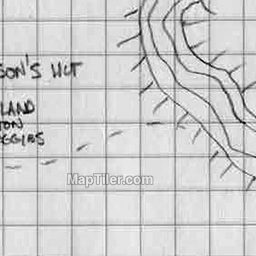 SON'S HUT
LAND
TON
EGGIES
MapTiler.com